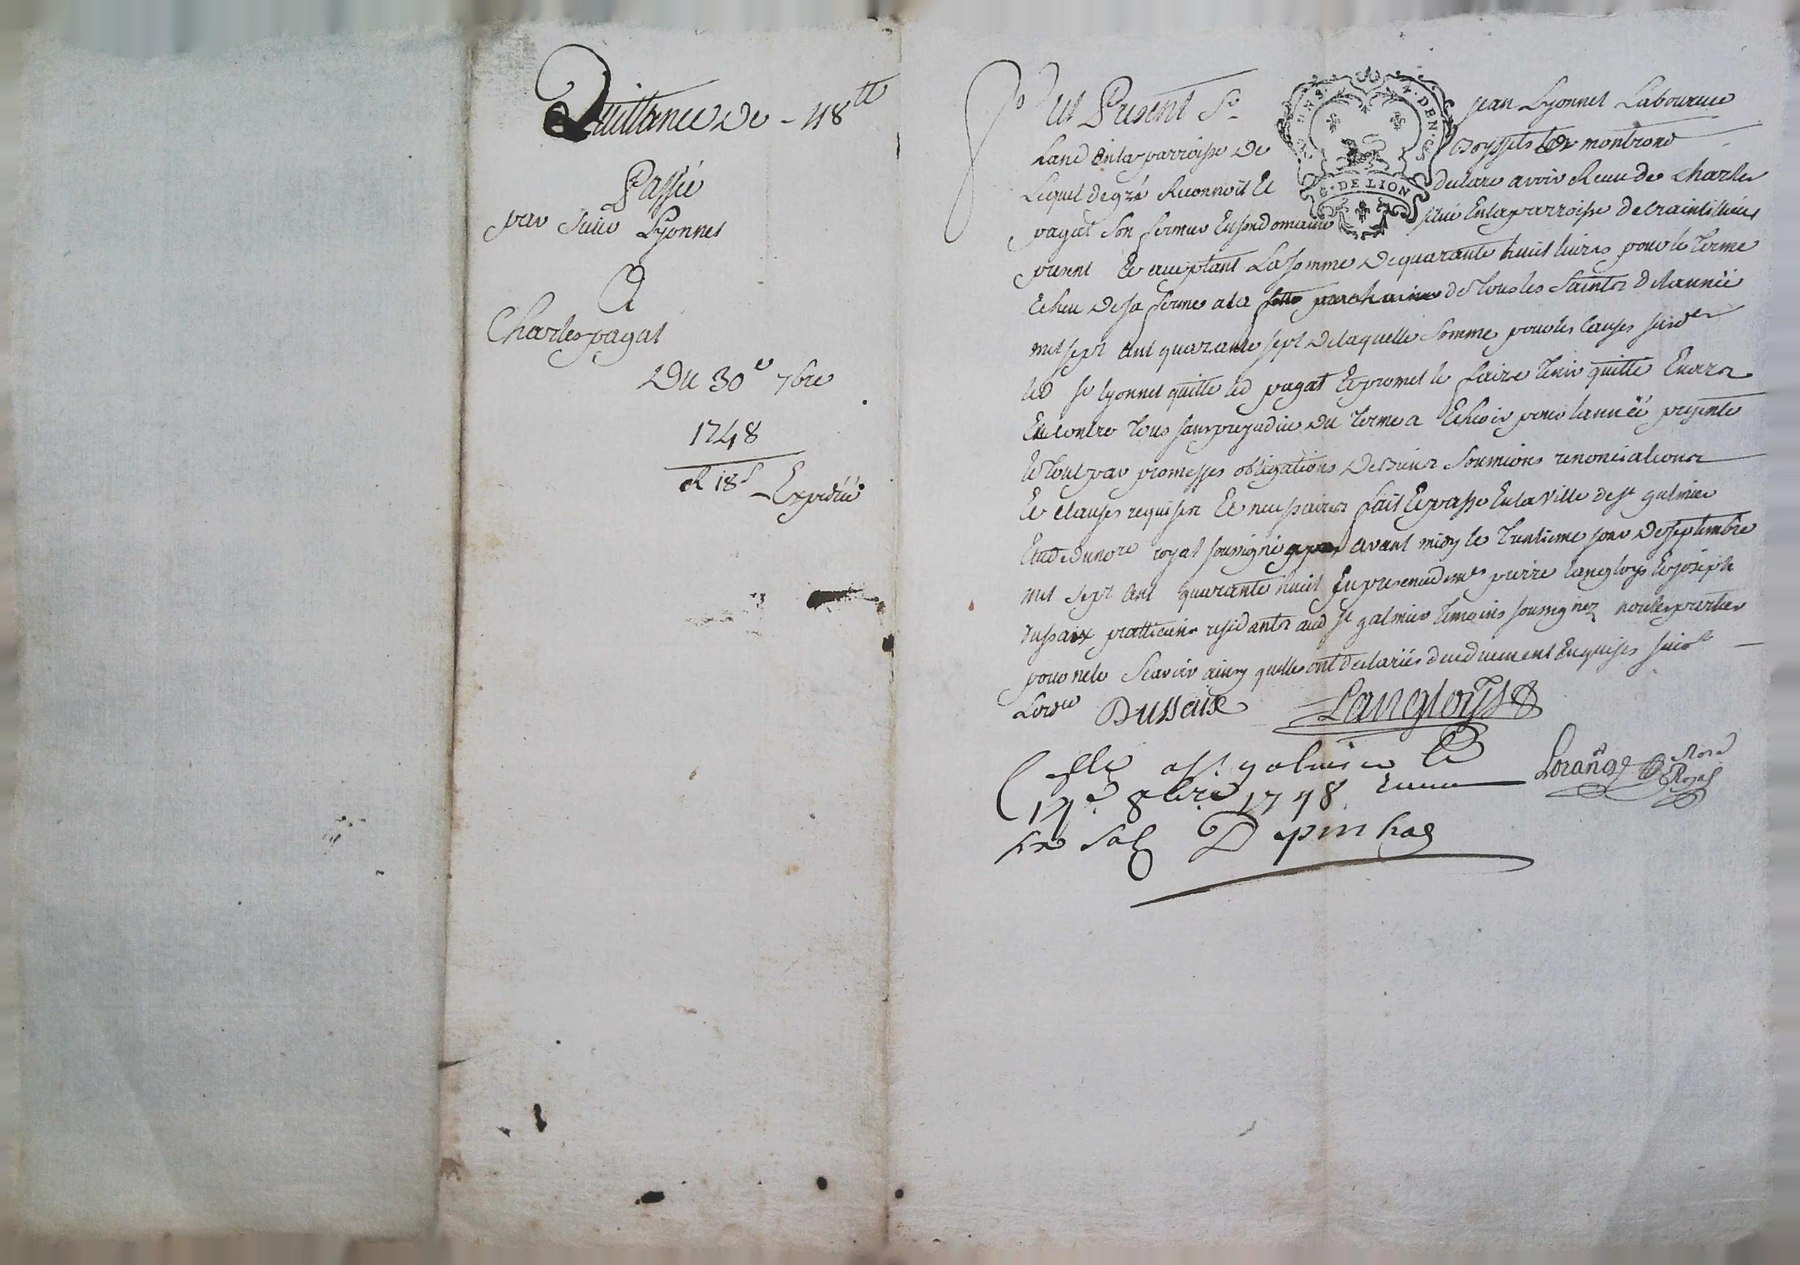 Quittance De - 48 tt
Passée
par sieur Lyonnet
A
Charles pagat
Du 30e 7bre
1748
R 18s
Expediée
Fut Present Sr Jean Lyonnet Laboureur
en la parroisse De de montrond
Lequel de gré Reconnoit Et declare avoir Reçu de Charles
pagat Son fermier En son domaine situé En la parroisse de Craintillieu
present Et acceptant La somme De quarante huit livres pour le terme
Echeu De sa ferme a la de tous les Saints De lannée
mil sept Cent quarante sept De laquelle Somme pour les Causes susd.
led Sr lyonnet quitte led pagat Et promet le faire tenir quitte Envers
Et Contre tous sans prejudice Du terme a Echeoir pour lannée presente
Et tout par promesses obligations De biens Soumions renonciations
Et Clauses requises Et necessaires fait Et passé En la Ville de St galmier
Etude du nore royal soussigné avant midy le trentieme jour De septembre
mil sept Cent quarante huit En presence de mes pierre langloys Et joseph
dussaix pratticiens residants aud St galmier temoins soussignez non les parties
pour ne le Scavoir ainsy quelles ont declarées duement Enquises
Dussaix Langloys
G. DE LION
Cllé a St galmier le
14e 8bre 1748 Reçu
six sols Depinhac
Lorange Nore Royal